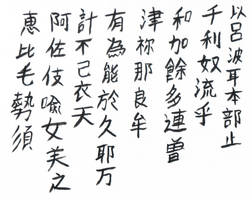 以呂波耳本部止
千利奴流乎
和加餘多連曽
津祢那良牟
有為能於久耶万
計不己衣天
阿佐伎喩女美之
恵比毛勢須